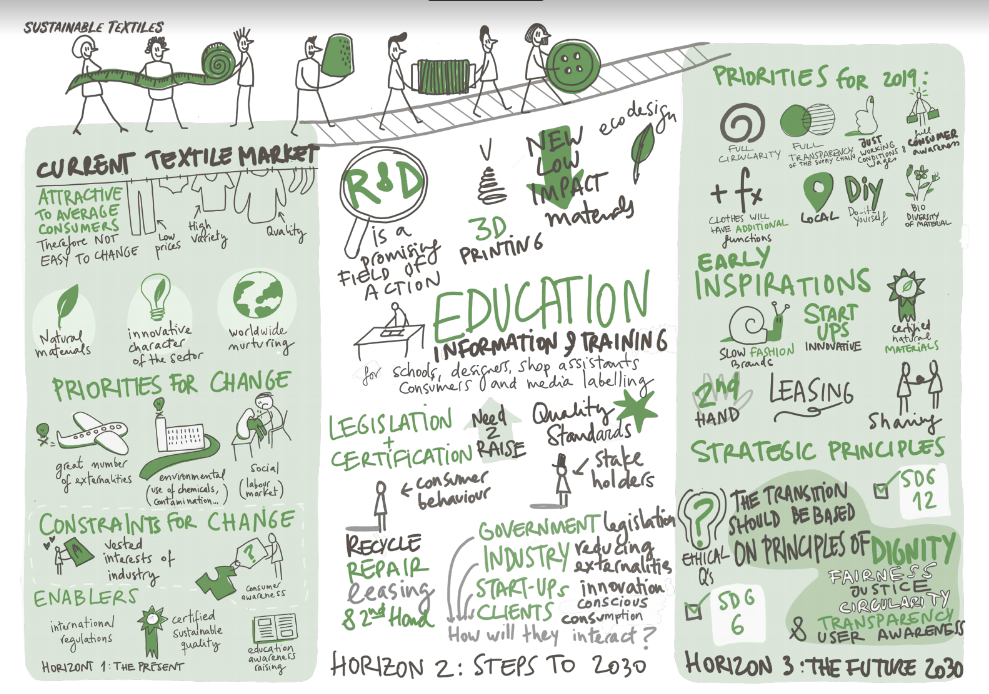 SUSTAINABLE TEXTILES
CURRENT TEXTILE MARKET
ATTRACTIVE
TO AVERAGE
CONSUMERS
Therefore NOT
EASY TO CHANGE
Low
prices
High
variety
Quality
Natural
materials
innovative
character
of the sector
worldwide
nurturing
PRIORITIES FOR CHANGE
great number
of externalities
environmental
(use of chemicals,
contamination...)
social
(labour
market)
CONSTRAINTS FOR CHANGE
vested
interests of
industry
?
consumer
awareness
ENABLERS
international
regulations
certified
sustainable
quality
education
awareness
raising
HORIZONT 1: THE PRESENT
R&D
is a
promising
FIELD OF
ACTION
3D
PRINTING
NEW
LOW
IMPACT
materials
ecodesign
EDUCATION
INFORMATION & TRAINING
for schools, designers, shop assistants
Consumers and media labelling
LEGISLATION
+
CERTIFICATION
Need
2
RAISE
Quality
Standards
consumer
behaviour
stake
holders
RECYCLE
REPAIR
leasing
& 2nd Hand
GOVERNMENT legislation
INDUSTRY reducing
externalities
START-UPS innovation
CLIENTS conscious
consumption
How will they interact?
HORIZON 2: STEPS TO 2030
PRIORITIES FOR 2019:
FULL
CIRCULARITY
FULL
TRANSPARENCY
OF THE SUPPLY CHAIN
JUST
WORKING
CONDITIONS &
wages
full
CONSUMER
awareness
+ fx
CLOTHES WILL
HAVE ADDITIONAL
functions
LOCAL
DiY
Do-it-
yourself
BIO
DIVERSITY
OF MATERIAL
EARLY
INSPIRATIONS
SLOW FASHION
Brands
START
UPS
INNOVATIVE
certified
natural
MATERIALS
2nd
HAND
LEASING
Sharing
STRATEGIC PRINCIPLES
?
ETHICAL
Q's
THE TRANSITION
SHOULD BE BASED
ON PRINCIPLES OF DIGNITY
FAIRNESS
JUSTICE
CIRCULARITY
& TRANSPARENCY
USER AWARENESS
SDG
12
SDG
6
HORIZON 3: THE FUTURE 2030